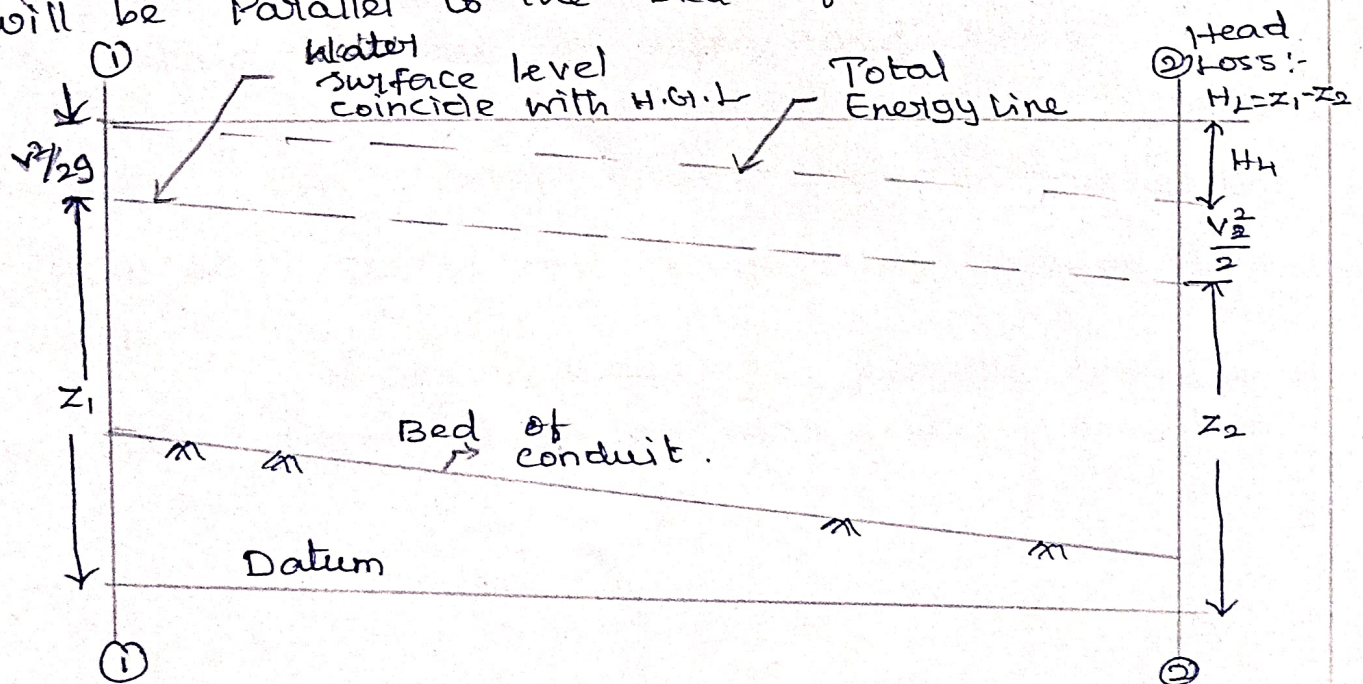 will be Parallel to the
①
Water
surface level
coincide with H.G.L
Total
Energy Line
② Head
Loss:-
HL=Z1-Z2
V²/2g
HL
V₂²/2
Z1
Z2
Bed of
conduit.
Datum
①
②